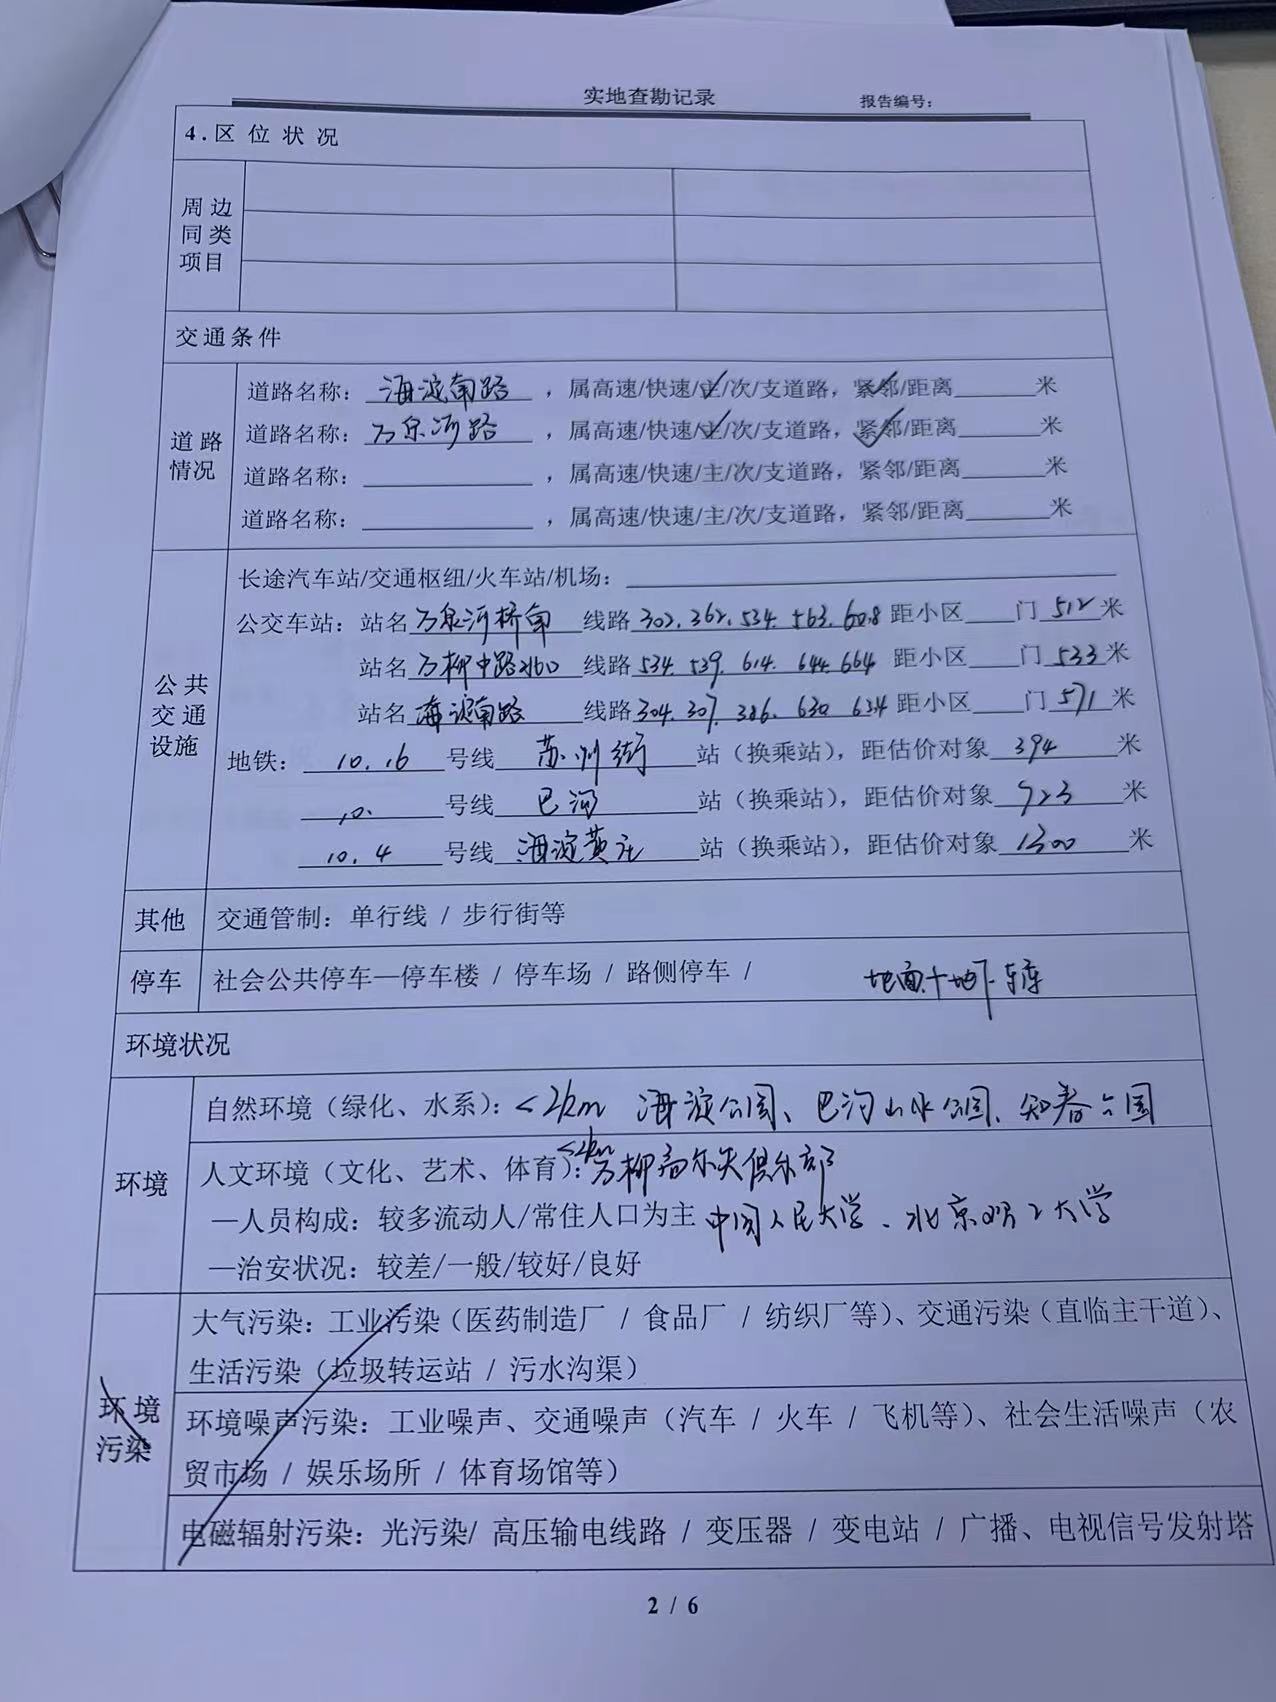 实地查勘记录 报告编号：
4.区位状况
周边同类项目
交通条件
道路情况
道路名称：海淀南路，属高速/快速/主/次/支道路，紧邻/距离______米
道路名称：万泉河路，属高速/快速/主/次/支道路，紧邻/距离______米
道路名称：______，属高速/快速/主/次/支道路，紧邻/距离______米
道路名称：______，属高速/快速/主/次/支道路，紧邻/距离______米
公共交通设施
长途汽车站/交通枢纽/火车站/机场：______
公交车站：站名万泉河桥南 线路302.362.534.563.608距小区____门512米
站名万柳中路北口 线路534.539.614.644.664 距小区____门533米
站名海淀南路 线路304.307.386.630 634距小区____门571米
地铁：10.16号线 苏州街 站（换乘站），距估价对象394米
10.号线 巴沟 站（换乘站），距估价对象923米
10.4号线 海淀黄庄 站（换乘站），距估价对象1300米
其他 交通管制：单行线 / 步行街等
停车 社会公共停车—停车楼 / 停车场 / 路侧停车 / 地面+地下车库
环境状况
环境
自然环境（绿化、水系）：<2km 海淀公园、巴沟山水公园、知春公园
人文环境（文化、艺术、体育）：<2km 万柳高尔夫俱乐部
—人员构成：较多流动人/常住人口为主 中国人民大学、北京理工大学
—治安状况：较差/一般/较好/良好
环境污染
大气污染：工业污染（医药制造厂 / 食品厂 / 纺织厂等）、交通污染（直临主干道）、
生活污染（垃圾转运站 / 污水沟渠）
环境噪声污染：工业噪声、交通噪声（汽车 / 火车 / 飞机等）、社会生活噪声（农
贸市场 / 娱乐场所 / 体育场馆等）
电磁辐射污染：光污染/ 高压输电线路 / 变压器 / 变电站 / 广播、电视信号发射塔
2 / 6